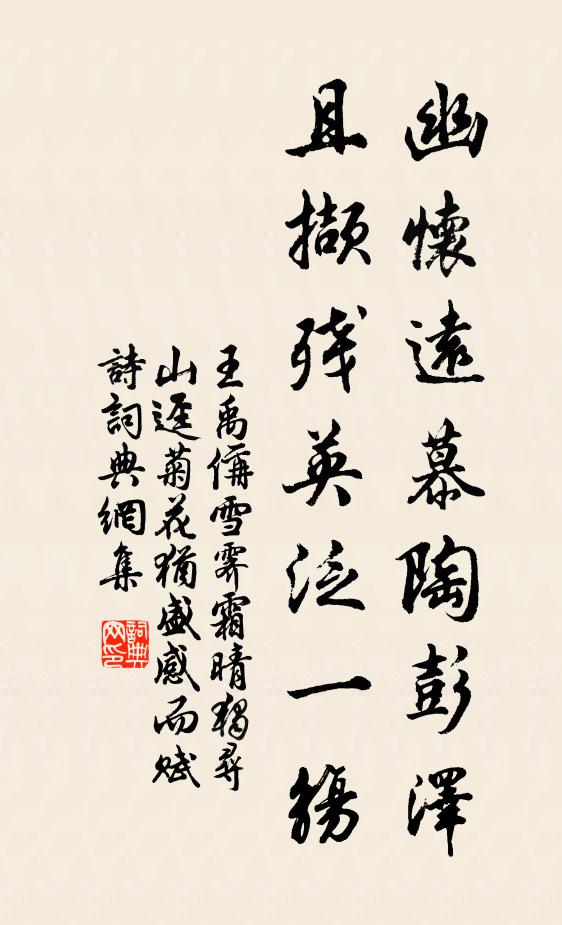 幽懷遠慕陶彭澤
且擷残英泛一觴
王禹偁雪霽霜晴獨尋
山逕菊花猶盛感而賦
詩詞典網集
詞典网印